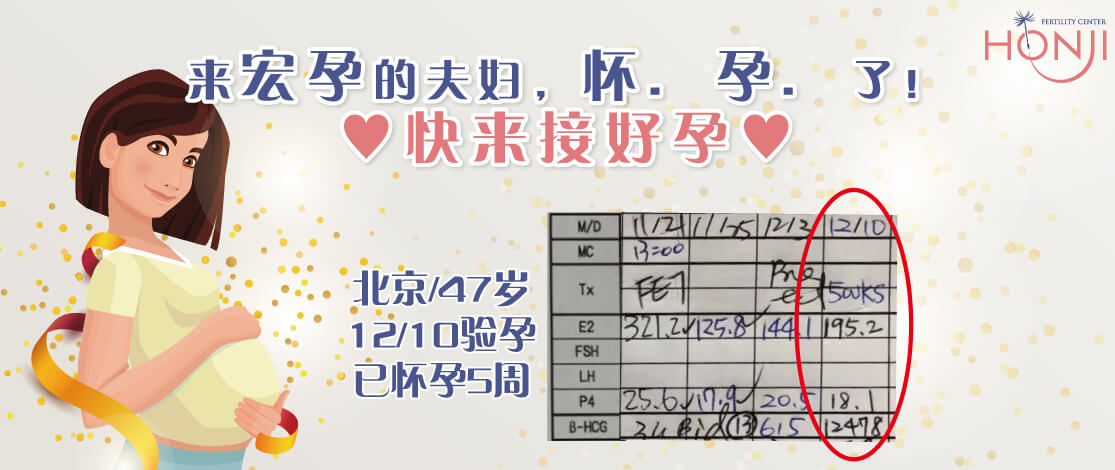 FERTILITY CENTER
HONJI
来宏孕的夫妇，怀．孕．了！
♥快来接好孕♥
北京/47岁
12/10验孕
已怀孕5周
M/D 11/21 11/25 12/3 12/10
MC 13=00
Tx FET 5wks
E2 321.2 125.8 144.1 195.2
FSH
LH
P4 25.6 17.9 20.5 18.1
β-HCG (13) 615 12478